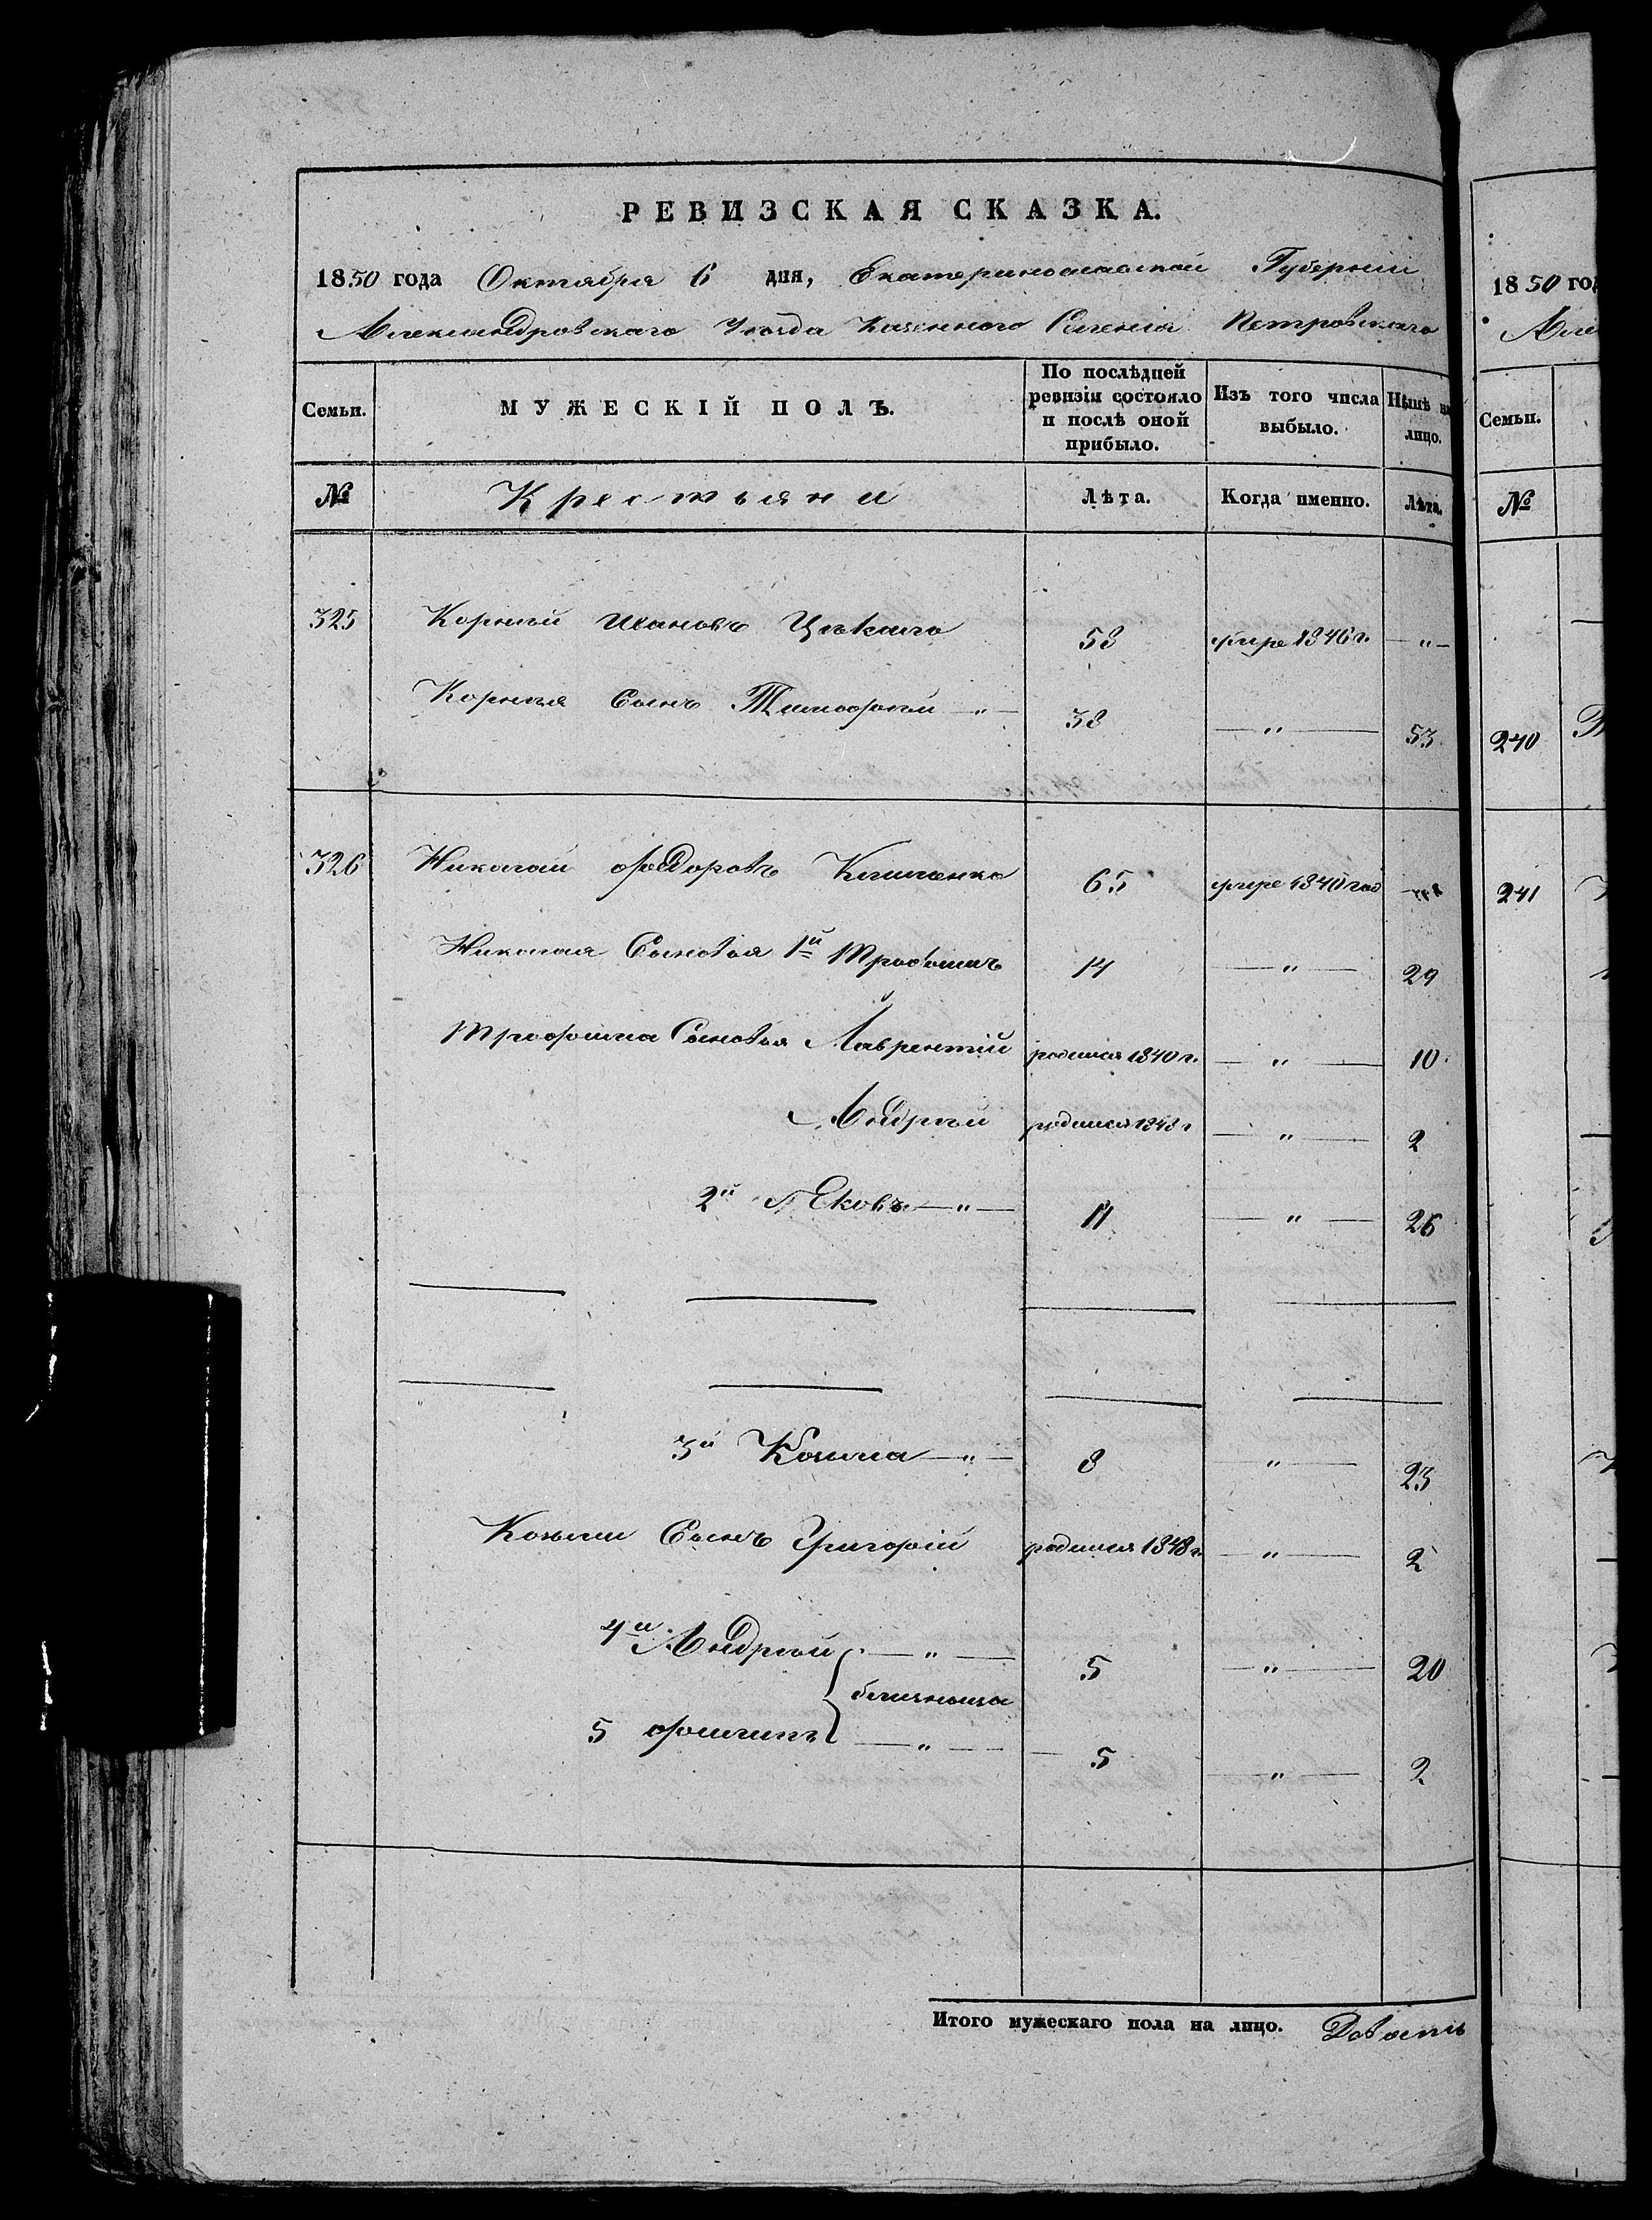 РЕВИЗСКАЯ СКАЗКА.
1850 года Октября 6 дня, Екатеринославской Губерніи
Александровскаго Уѣзда Казеннаго Селенія Петровскаго
Семьи. МУЖЕСКІЙ ПОЛЪ. По послѣдней ревизіи состояло и послѣ оной прибыло. Изъ того числа выбыло. Нынѣ на лицо.
№ Крестьяни Лѣта. Когда именно. Лѣта.
325 Корнѣй Ивановъ 58 умре 1846 г. — " —
Корнѣя Сынъ Тимофѣй — " — 38 — " — 53.
326 Николай Федоровъ 65 умре 1840 год
Николая Сыновья 1й Трофимъ 14 — " — 29
Трофима Сыновья Лаврентій родился 1840 г. — " — 10.
Андрѣй родился 1848 г — " — 2
2й Яковъ — " — 11 — " — 26
3й Козьма — " — 8 — " — 23
Козьмы Сынъ Григорій родился 1848 г. — " — 2
4й Андрѣй — " — 5 — " — 20
близнецы
5 Филипъ — " — 5 — " — 2
Итого мужескаго пола на лицо. Девять
1850 год
Але
Семьи.
№
240
241